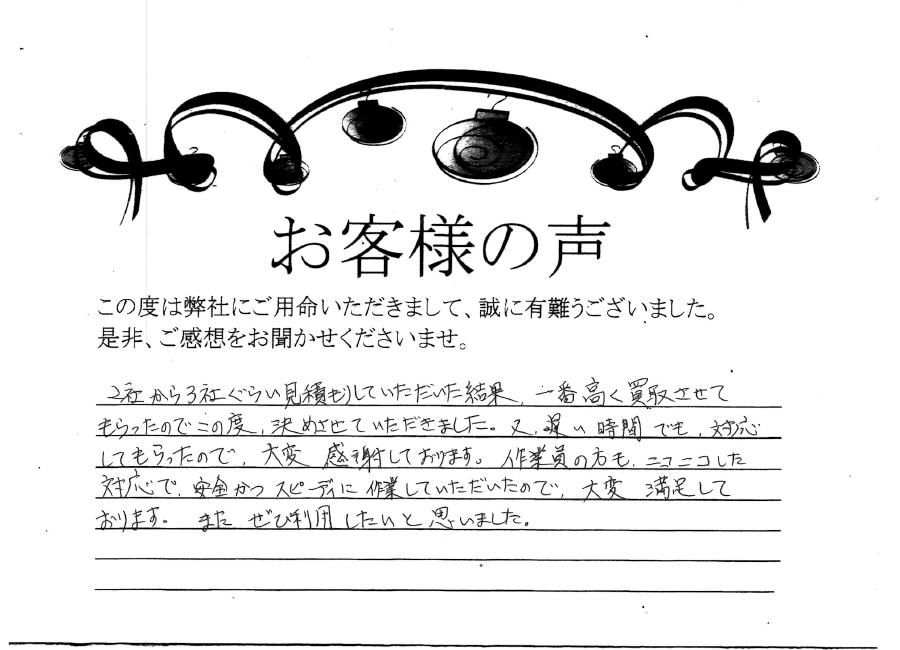 お客様の声
この度は弊社にご用命いただきまして、誠に有難うございました。
是非、ご感想をお聞かせくださいませ。
2社から3社ぐらい見積もりしていただいた結果、一番高く買取させて
もらったのでこの度、決めさせていただきました。又、遅い時間でも、対応
してもらったので、大変 感謝しております。作業員の方も、ニコニコした
対応で、安全かつスピーディに作業していただいたので、大変 満足して
おります。 また ぜひ利用したいと思いました。